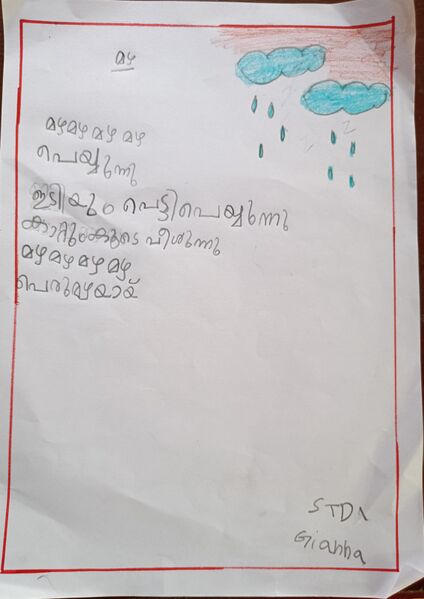 മഴ
മഴമഴ മഴ മഴ
പെയ്യുന്നു
ഇടിയും പെട്ടിപെയ്യുന്നു
കാറ്റുംകൂടെ വീശുന്നു
മഴമഴമഴമഴ
പെരുമഴയായ്
STD1
Gianna